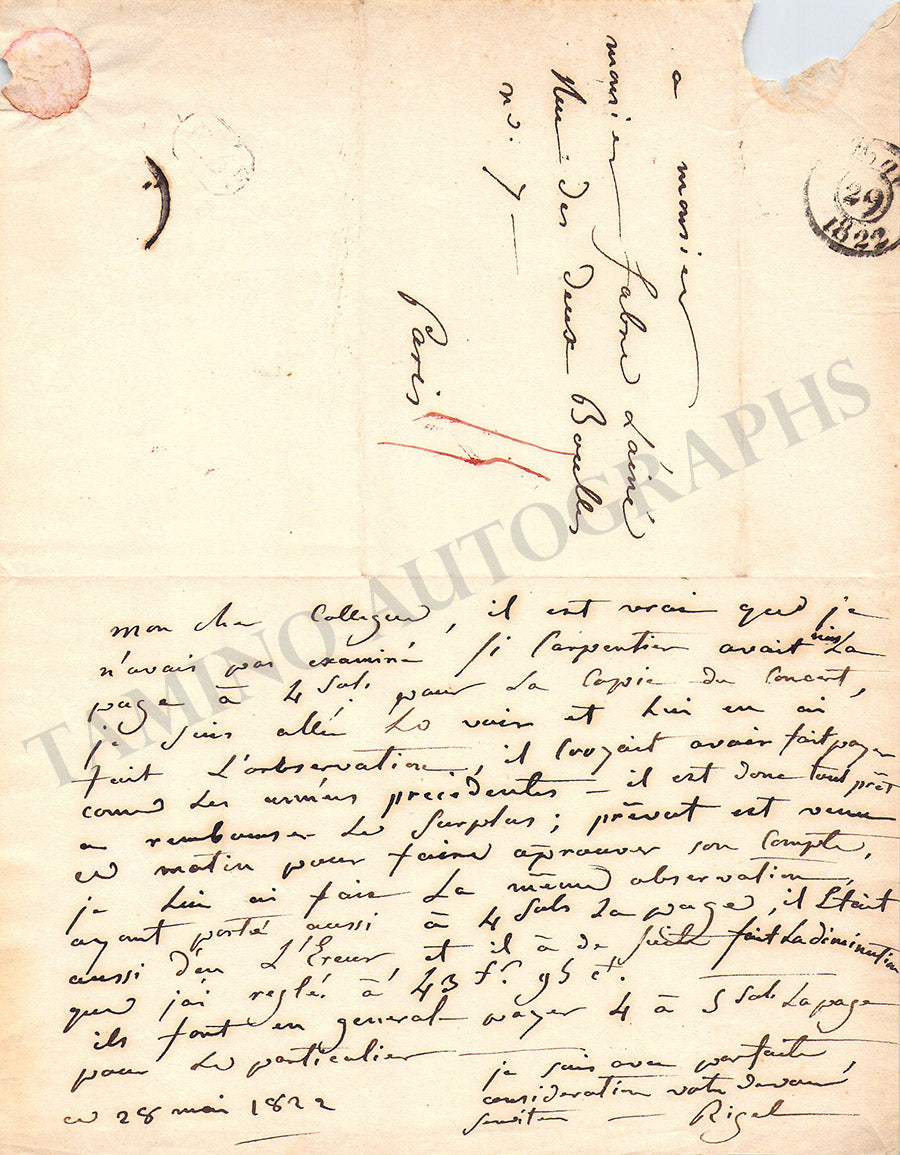 a monsieur
monsieur fabre L'ainé
Rue des deux Boulles
no. 7
Paris
29
1822
TAMINO AUTOGRAPHS
mon cher Collegue, il est vrai que je
n'avais pas examiné si Carpentier avait mis La
page à 4 sols pour La Copie du Concert,
je suis allé Le voir et Lui en ai
fait L'observation, il croyait avoir fait payer
come Les années precedentes - il est donc tout prêt
a rembourser Le surplus; prévot est venu
ce matin pour faire aprouver son Compte,
je Lui ai fait La même observation,
ayant porté aussi à 4 sols La page, il Etait
aussi dans L'Ereur, et il à de suite fait La diminution
que j'ai reglé à 43 fr. 95 ct.
ils font en general payer 4 à 5 sols La page
pour Le particulier
je suis avec parfaite
consideration votre devoué
serviteur Rigel
ce 28 mai 1822